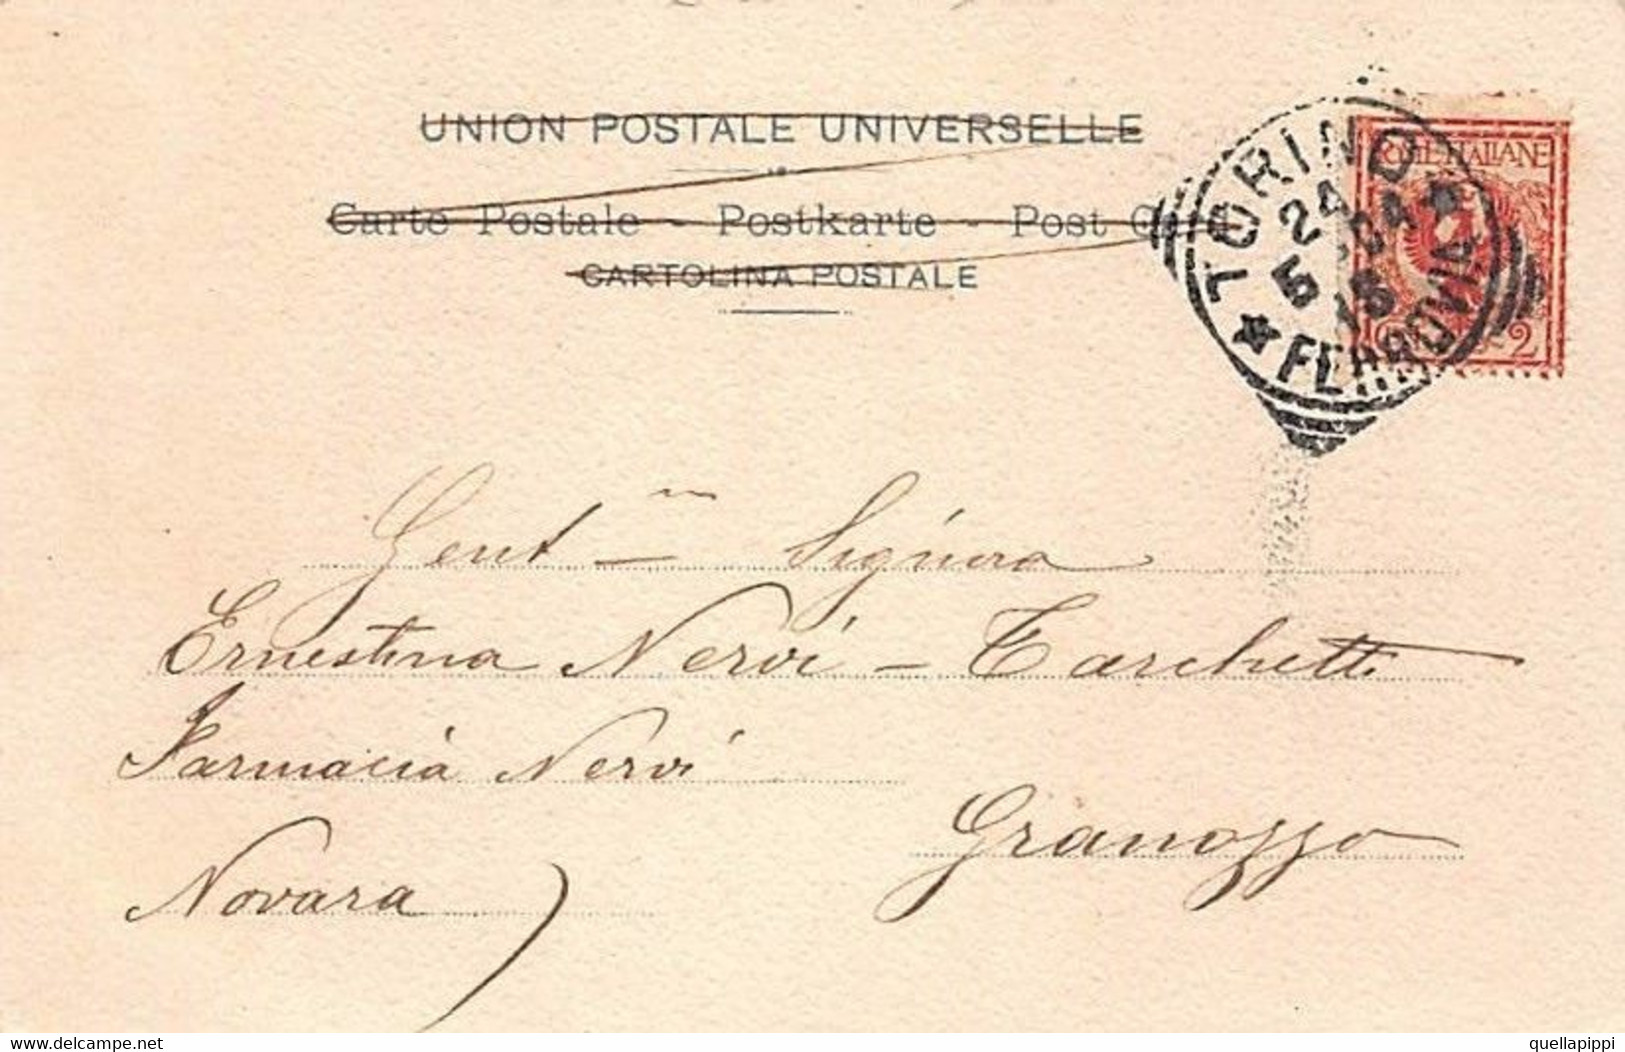 UNION POSTALE UNIVERSELLE
Carte Postale - Postkarte - Post
CARTOLINA POSTALE
TORINO
24
5
FERROVIA
POSTE ITALIANE
2
Gent.ma Signora
Ernestina Nervi - Tarchetti
Farmacia Nervi
Granozzo
Novara
www.delcampe.net
quellapippi